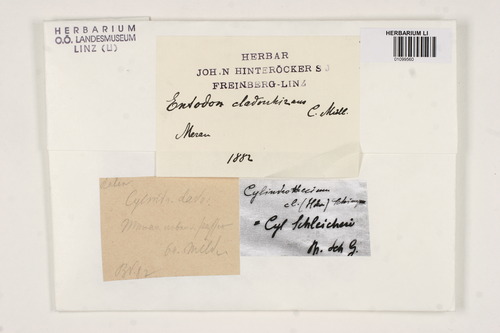 HERBARIUM
O.Ö. LANDESMUSEUM
LINZ (LI)
HERBARIUM LI
01099560
HERBAR
JOH.N HINTERÖCKER S J
FREINBERG-LINZ
Entodon cladorrhizans
C. Müll.
Meran
1882
Cylindr.
Meran
Cylindrothecium
cl. (Hdw) Schimp
= Cyl Schleicheri
Br. Sch G.